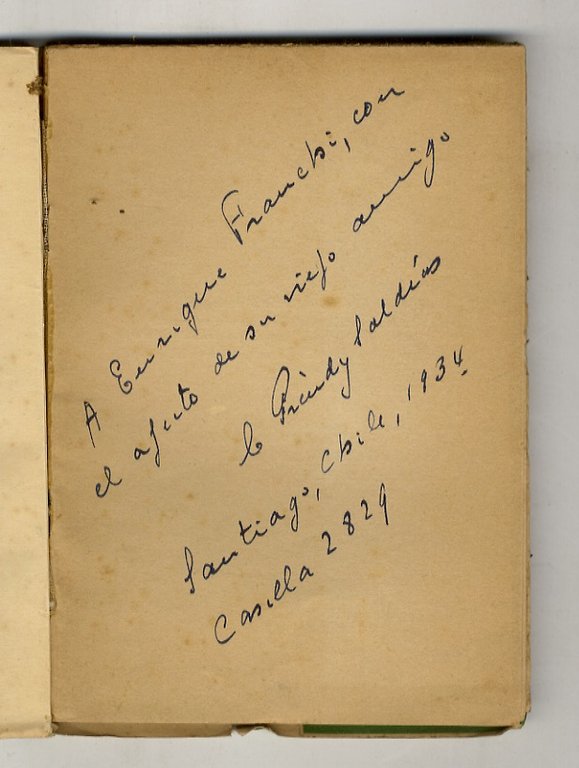 A Enrique Franchi, con
el afecto de su viejo amigo
C Préndez Saldías
Santiago, Chile, 1934
Casilla 2829